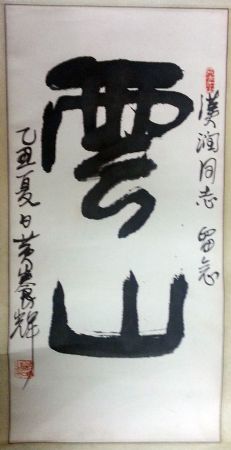 漢润同志 留念
雲山
乙丑夏日黄輝